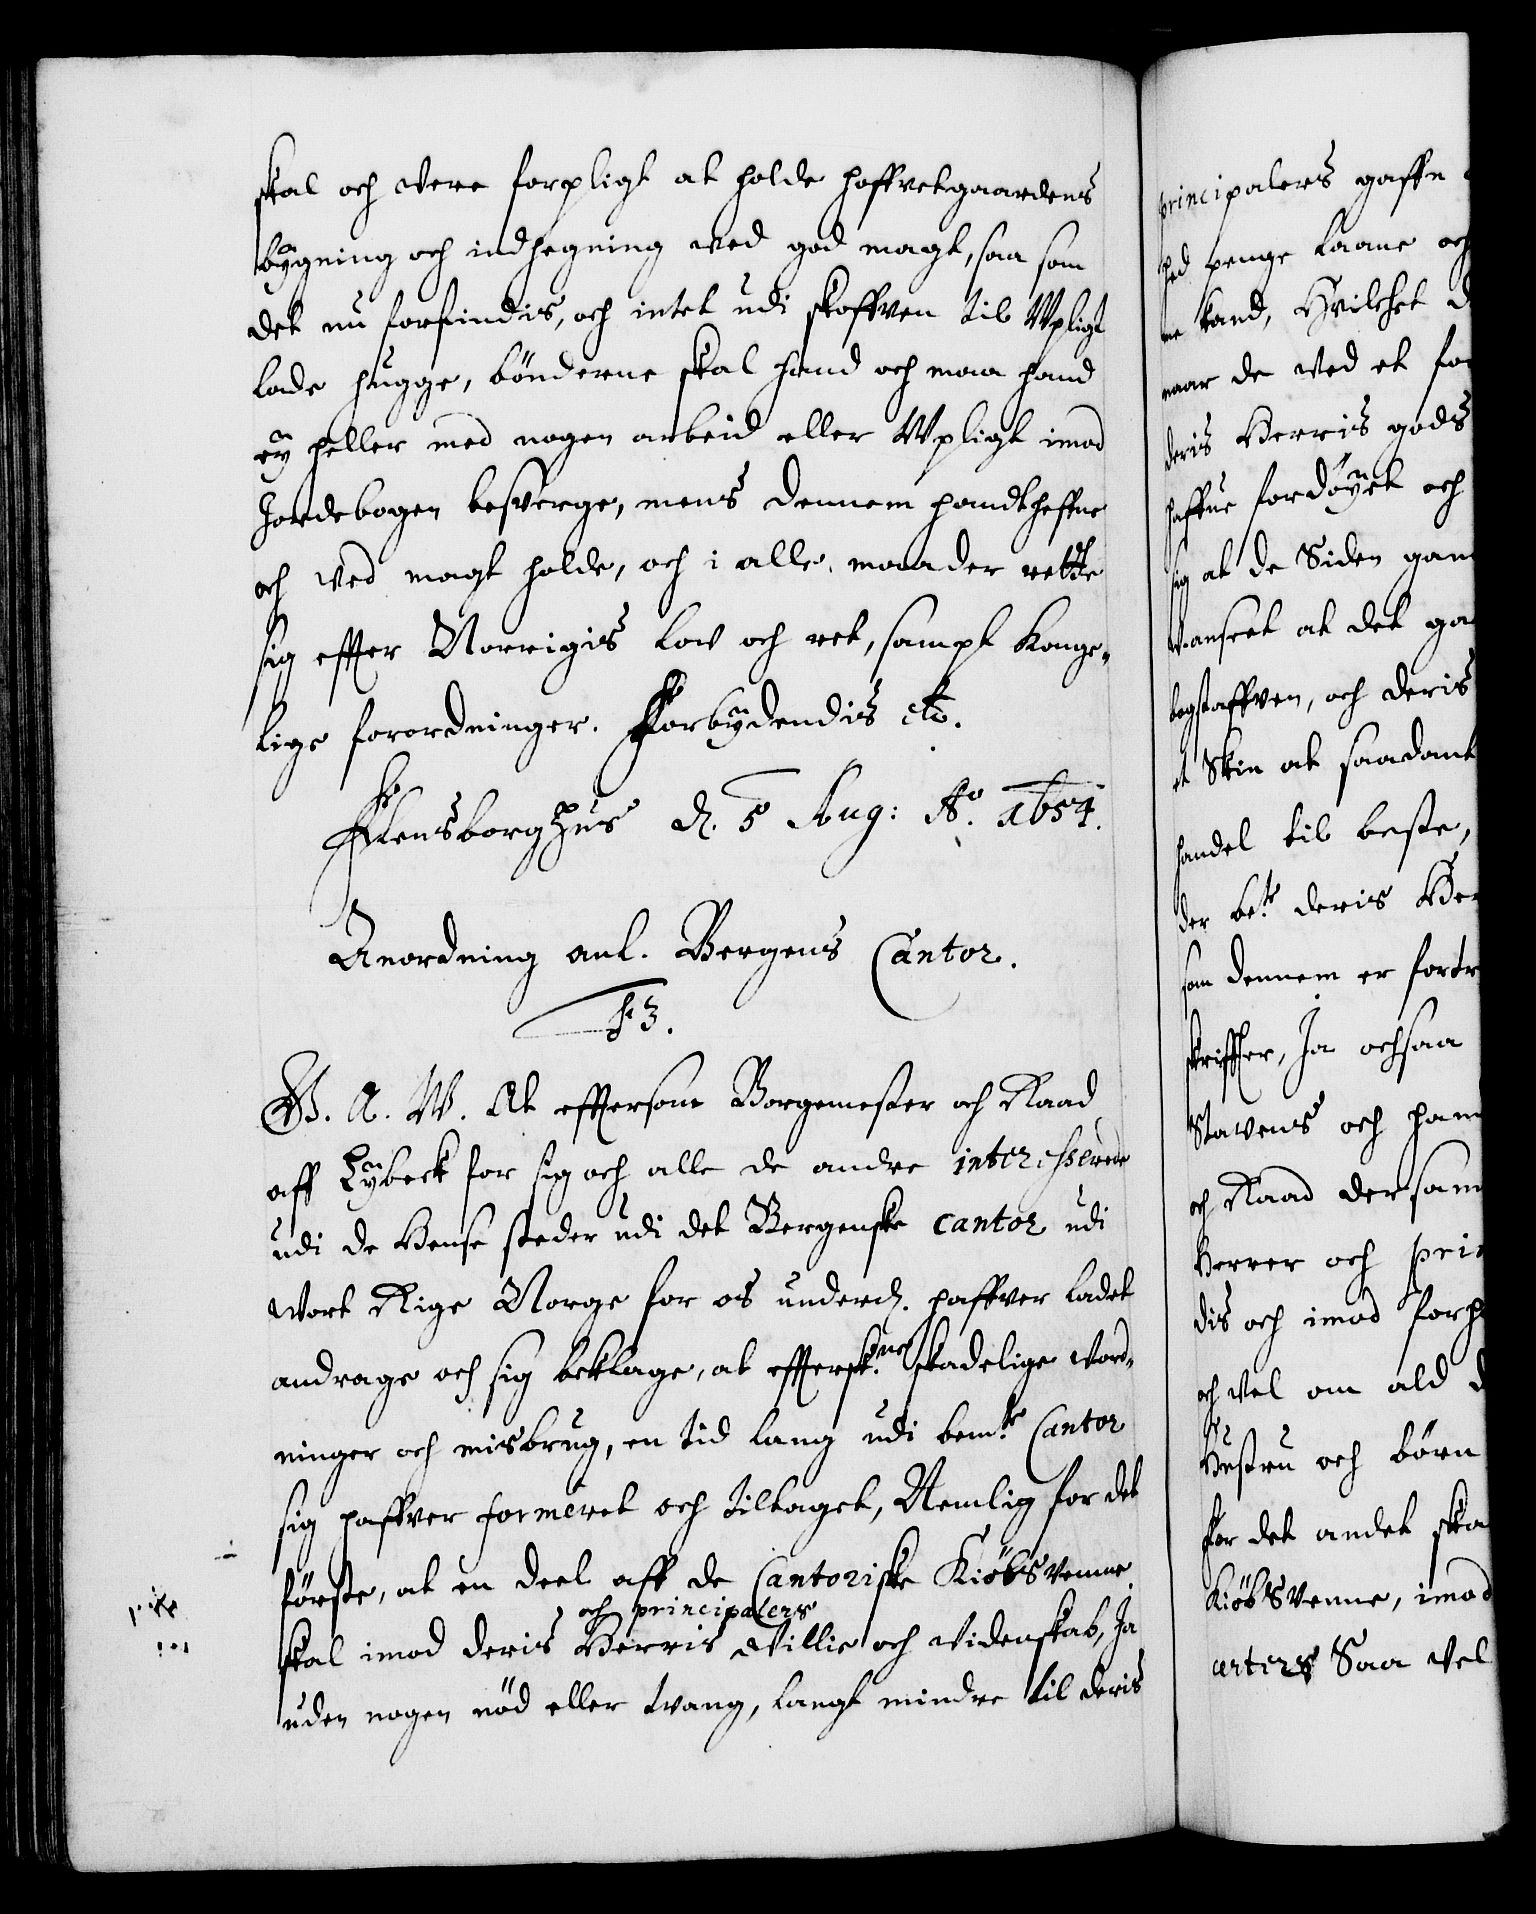 skal och vere forpligt at holde hoffvetgaardens
bÿgning och indhegning ved god magt, saa som
det nu forfindis, och intet udi skoffven til Upligt
lade hugge, bönderne skal hand och maa hand
eÿ heller med nogen arbeid eller Upligt imod
Jordebogen besverge, mens dennem handtheffve
och ved magt holde, och i alle maader rette
sig effter Norrigis Lov och ret, sampt Konge-
lige forordninger. Forbÿdendis etc.
Flensborghus d. 5 Aug: Ao. 1654.
Anordning anl. Bergens Cantor.
F3.
G. A. W. At efftersom Borgemester och Raad
aff Lÿbeck for sig och alle de andre interesserede
udi de Hense steder udi det Bergenske Cantor udi
Vort Rige Norge for os underd. haffver ladet
andrage och sig beklage, at effterskne skadelige Vord-
ninger och misbrug, en tid lang udi bemte Cantor
sig haffver formeret och tiltaget, Nemlig for det
förste, at en deel aff de Cantoriske Kiöbsvenne
och principalers
skal imod deris Herris Villie och Videnskab, Ja
uden nogen nöd eller tvang, langt mindre til deris
principalers gaffn
penge laane och
kand, Hvilchet
naar de ved et
deris Herris gods
haffve fordöÿet och
sig at de Siden
Uanseet at det
bogstaffven, och deris
et Skin at saadant
handel til beste,
der bete deris
som dennem er
skriffter, Ja ochsaa
Stavens och
och Raad
Herrer och
dis och imod
och vel om ald
Hustru och börn
For det andet
Kiöbsvenne, imod
arters Saa vel